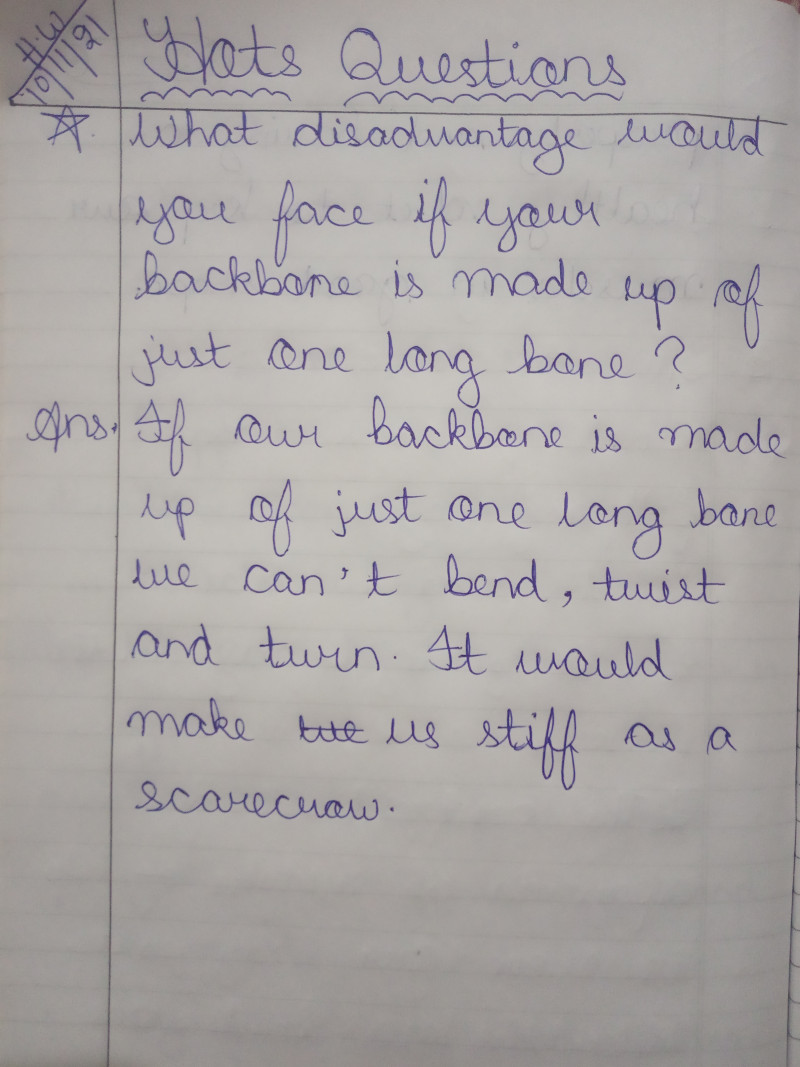 H.W
10/11/21
Hots Questions
What disadvantage would
you face if your
backbone is made up of
just one long bone ?
Ans. If our backbone is made
up of just one long bone
we can't bend, twist
and turn. It would
make us stiff as a
scarecrow.